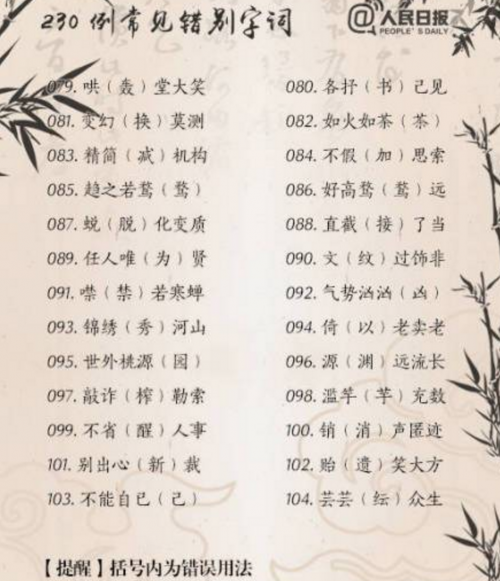 230 例常见错别字词
@人民日报
PEOPLE'S DAILY
079. 哄（轰）堂大笑 080. 各抒（书）己见
081. 变幻（换）莫测 082. 如火如荼（茶）
083. 精简（减）机构 084. 不假（加）思索
085. 趋之若鹜（骛） 086. 好高骛（鹜）远
087. 蜕（脱）化变质 088. 直截（接）了当
089. 任人唯（为）贤 090. 文（纹）过饰非
091. 噤（禁）若寒蝉 092. 气势汹汹（凶）
093. 锦绣（秀）河山 094. 倚（以）老卖老
095. 世外桃源（园） 096. 源（渊）远流长
097. 敲诈（榨）勒索 098. 滥竽（芋）充数
099. 不省（醒）人事 100. 销（消）声匿迹
101. 别出心（新）裁 102. 贻（遗）笑大方
103. 不能自已（己） 104. 芸芸（纭）众生
【提醒】括号内为错误用法